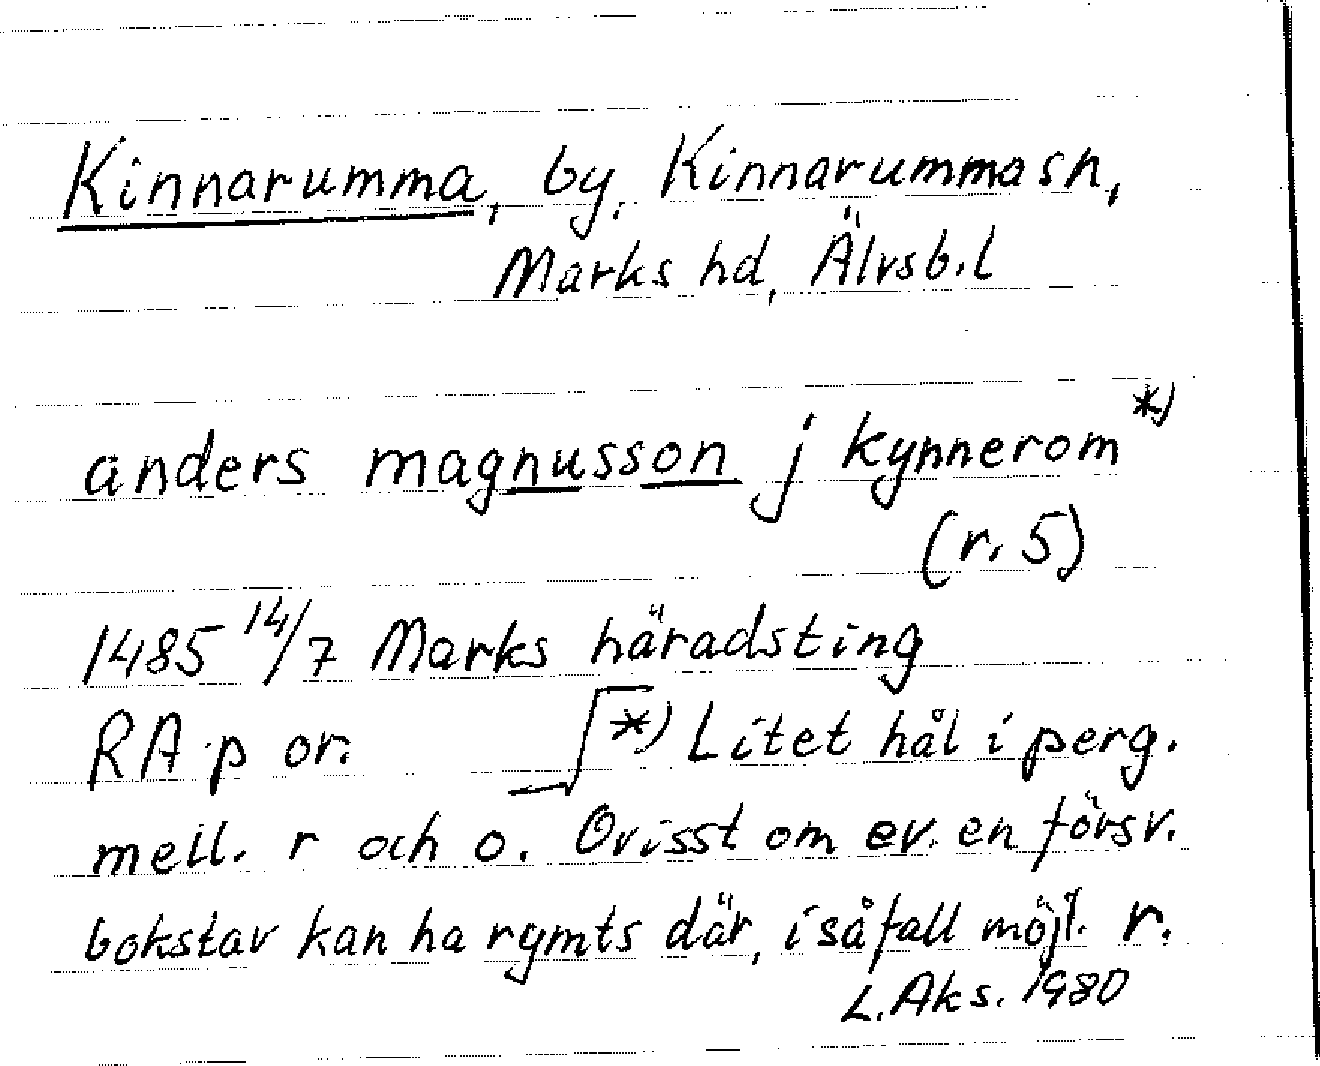 Kinnarumma, by, Kinnarumma sn,
Marks hd, Älvsb. l
anders magnusson j kynnerom *)
(r. 5)
1485 14/7 Marks häradsting
RA p or. *) Litet hål i perg.
mell. r och o. Ovisst om ev. en försv.
bokstav kan ha rymts där, i så fall möjl. r.
L. Aks. 1980